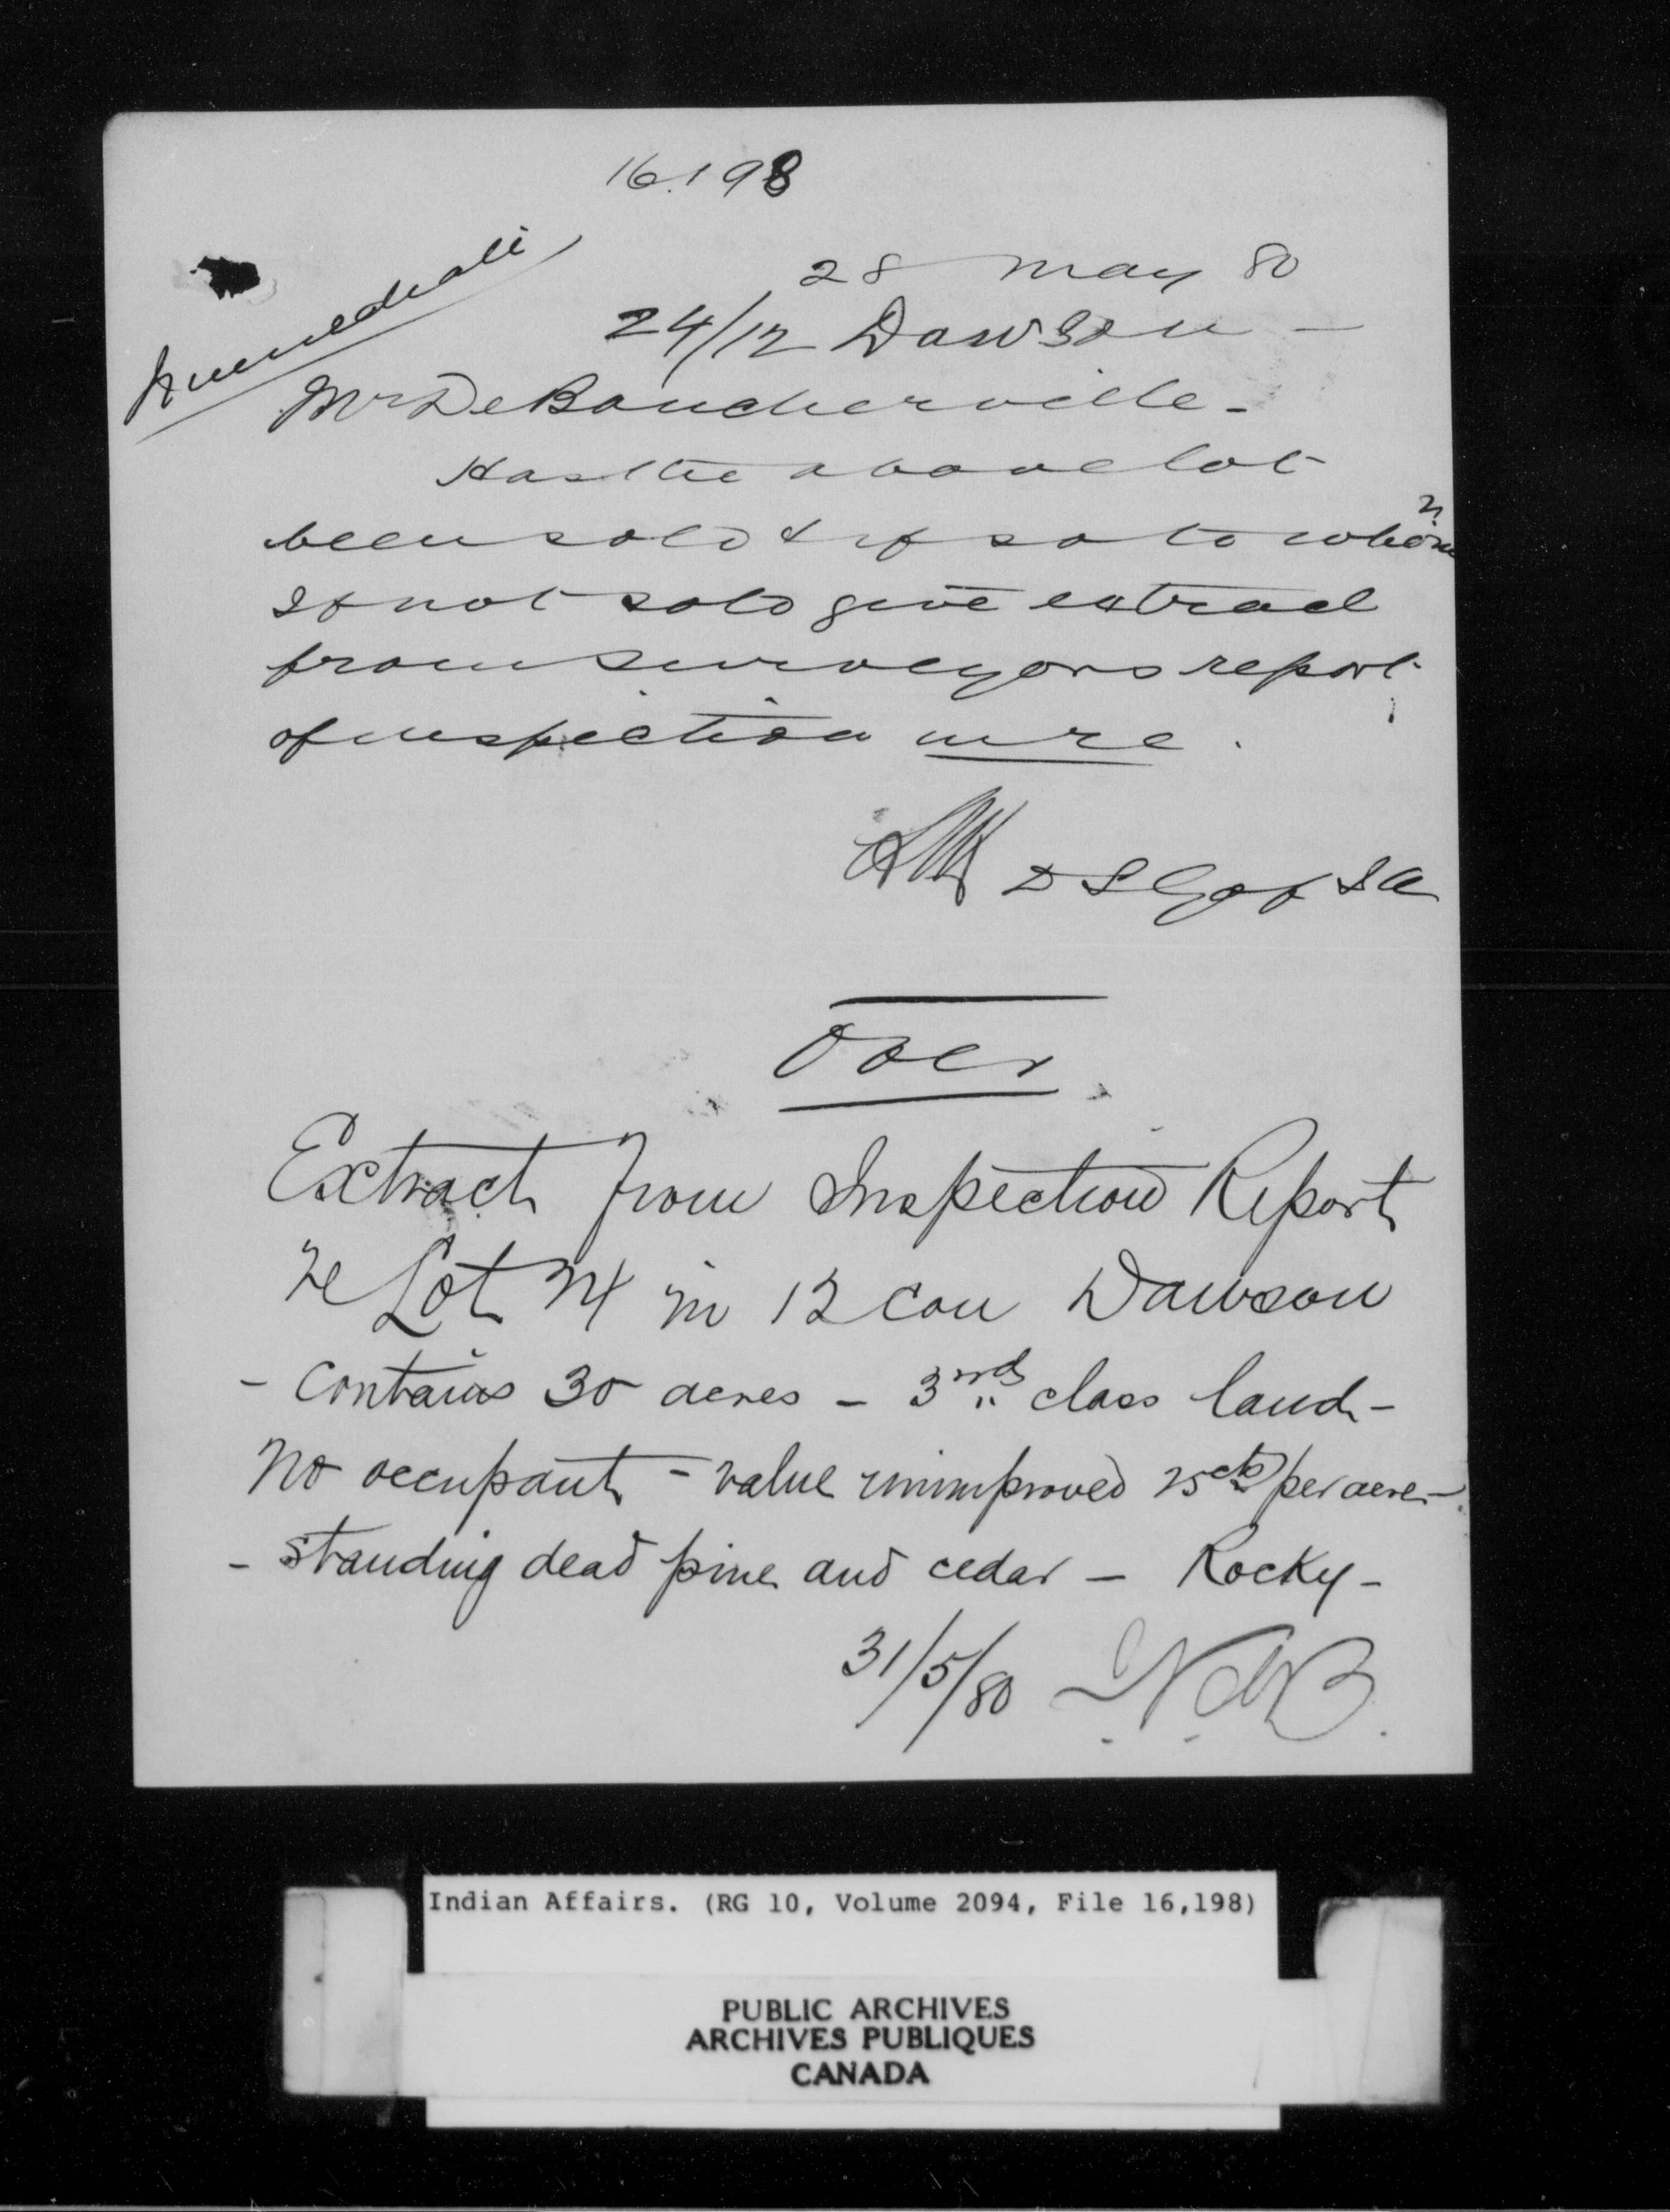 16.198
Immediate
28 May 80
24/12 Dawson -
Mr De Boucherville -
Has the above lot
been sold & if so to whom?
If not sold give extract
from surveyors report
of inspection in re.
D S G of I A
Over
Extract from Inspection Report
re Lot 24 in 12 con Dawson
- Contains 30 acres - 3rd class land -
No occupant - value unimproved 25cts per acre -
- Standing dead pine and cedar - Rocky -
31/5/80 N de B.
Indian Affairs. (RG 10, Volume 2094, File 16,198)
PUBLIC ARCHIVES
ARCHIVES PUBLIQUES
CANADA